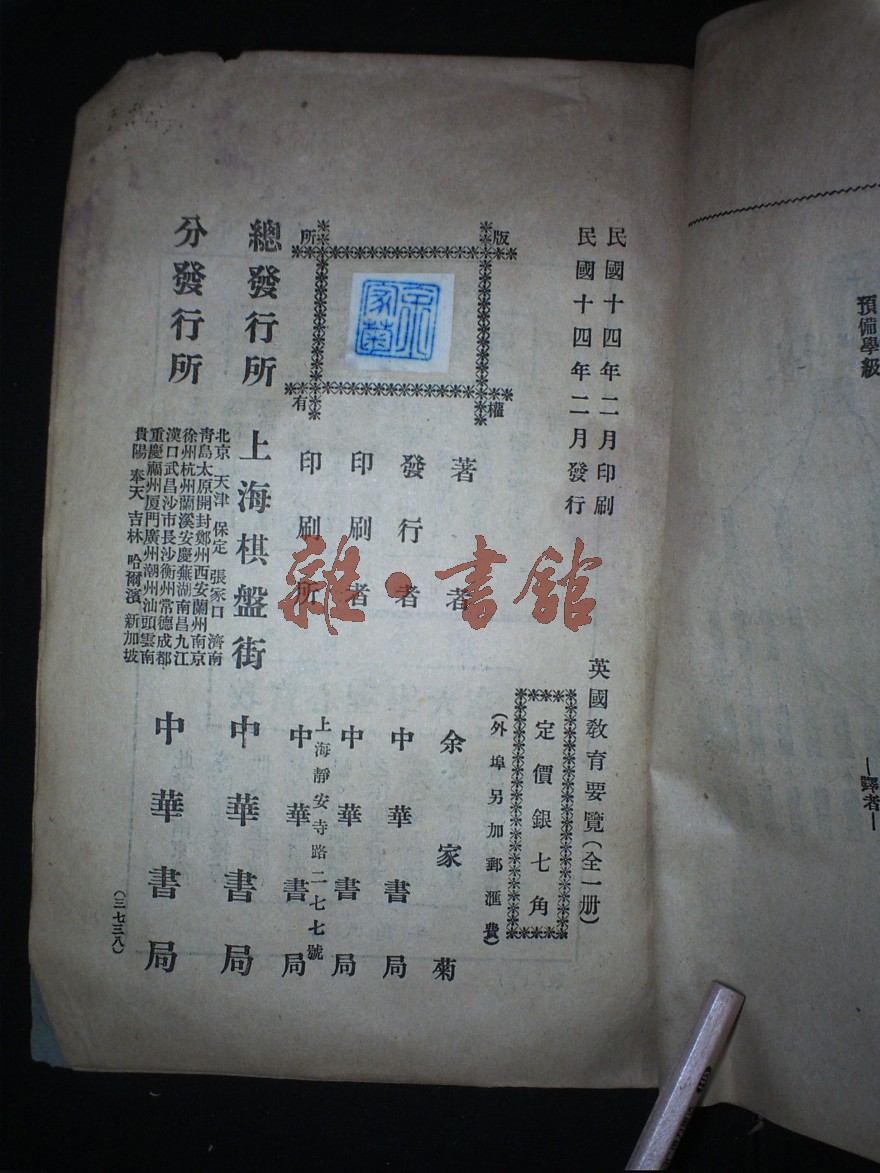 預備學級
—譯者—
民國十四年二月印刷
民國十四年二月發行
英國教育要覽(全一册)
定價銀七角
(外埠另加郵滙費)
版權所有
余家菊
著者 余家菊
發行者 中華書局
印刷者 中華書局
上海靜安寺路二七七號
印刷所 中華書局
總發行所 上海棋盤街 中華書局
北京 天津 保定 張家口 濟南
青島太原開封鄭州西安蘭州南京
徐州杭州蘭溪安慶蕪湖南昌九江
漢口武昌沙市長沙衡州常德成都
重慶福州厦門廣州潮州汕頭雲南
貴陽 奉天 吉林 哈爾濱 新加坡
分發行所 中華書局
(三七三八)
雜·書館